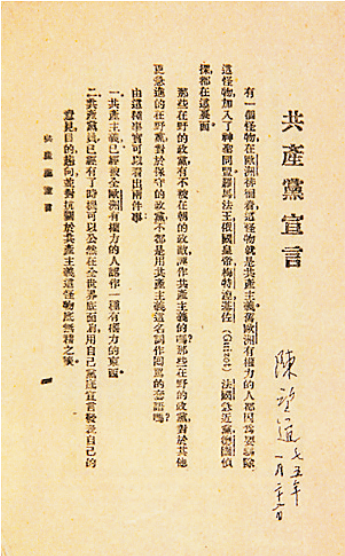 共產黨宣言
有一個怪物，在歐洲徘徊着，這怪物就是共產主義。舊歐洲有權力的人都因爲要驅除
這怪物，加入了神聖同盟。羅馬法王，俄國皇帝，梅特涅，基佐（Guizot），法國急進黨，德國偵
探，都在這裏面。
那些在野的政黨，有不被在朝的政敵，誣作共產主義的嗎？那些在野的政黨，對於其他
更急進的在野黨，對於保守的政黨，不都是用共產主義這名詞作回罵的套語嗎？
由這種事實可以看出兩件事：
一、共產主義，已經被全歐洲有權力的人認作一種有權力的東西。
二、共產黨員，已經有了時機可以公然在全世界底面前，用自己黨底宣言發表自己的
意見，目的，趨向，並對抗關於共產主義這怪物底無稽之談。
共產黨宣言 一
陳望道
七五年
一月